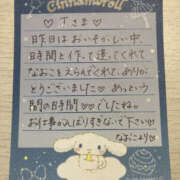 Cinnamoroll
♡ Tさま ♡
昨日はおいそがしい中、
時間を作って逢ってくれて
なおこをえらんでくれて、ありが
とうございました♡ あっという
間の時間♡♡でしたね。
お仕事がんばりすぎないで下さい♡
なおこより♡